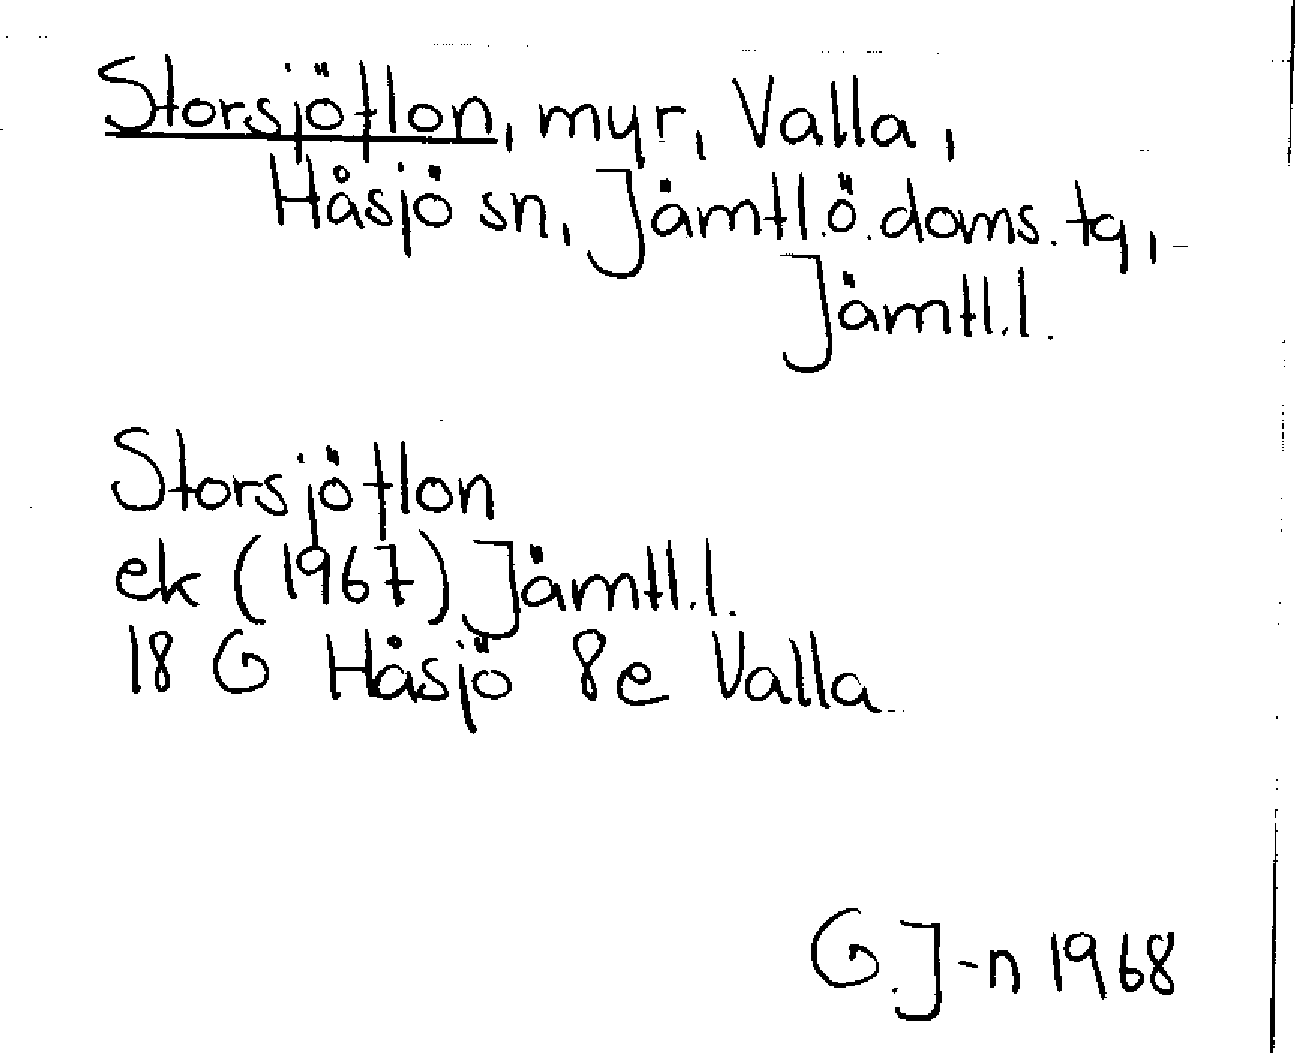 Storsjöflon, myr, Valla,
Håsjö sn, Jämtl.ö.doms.tg,
Jämtl.l.
Storsjöflon
ek (1967) Jämtl.l.
18 G Håsjö 8e Valla
G.J-n 1968